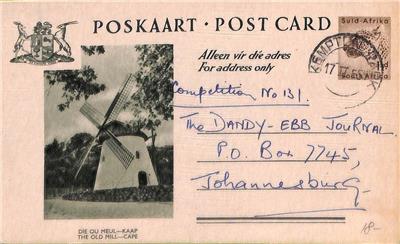 POSKAART · POST CARD
Alleen vir die adres
For address only
Suid-Afrika
South Africa
KEMPTON PARK
17
Competition No 131.
The DANDY-EBB JOURNAL
P.O. Box 7745,
Johannesburg
DIE OU MEUL—KAAP
THE OLD MILL—CAPE
18-